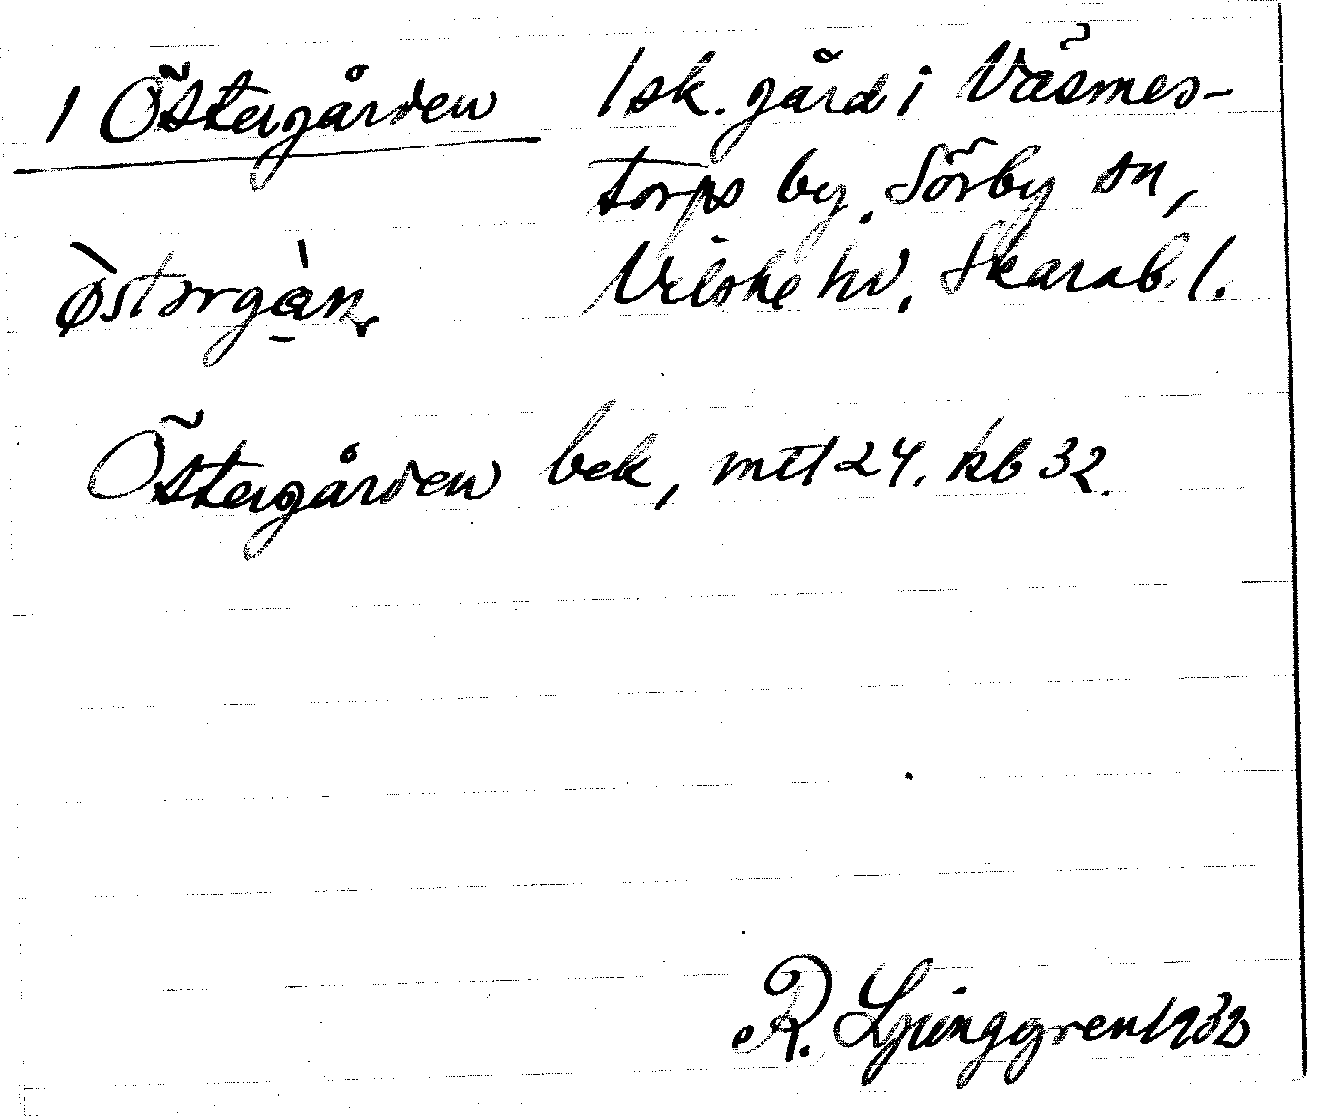 1 Östergården
1 sk. gård i Väsmes-
torps by. Sörby sn,
Vilske hd. Skarab. l.
östorgàn
Östergården bek, mtl 24. kb 32.
R. Ljunggren 1932